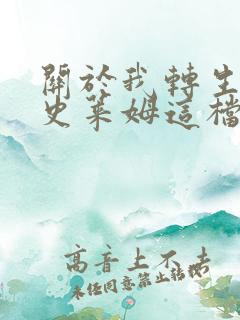 關於我轉生
史萊姆這檔
高音上不去
未經同意禁止轉載